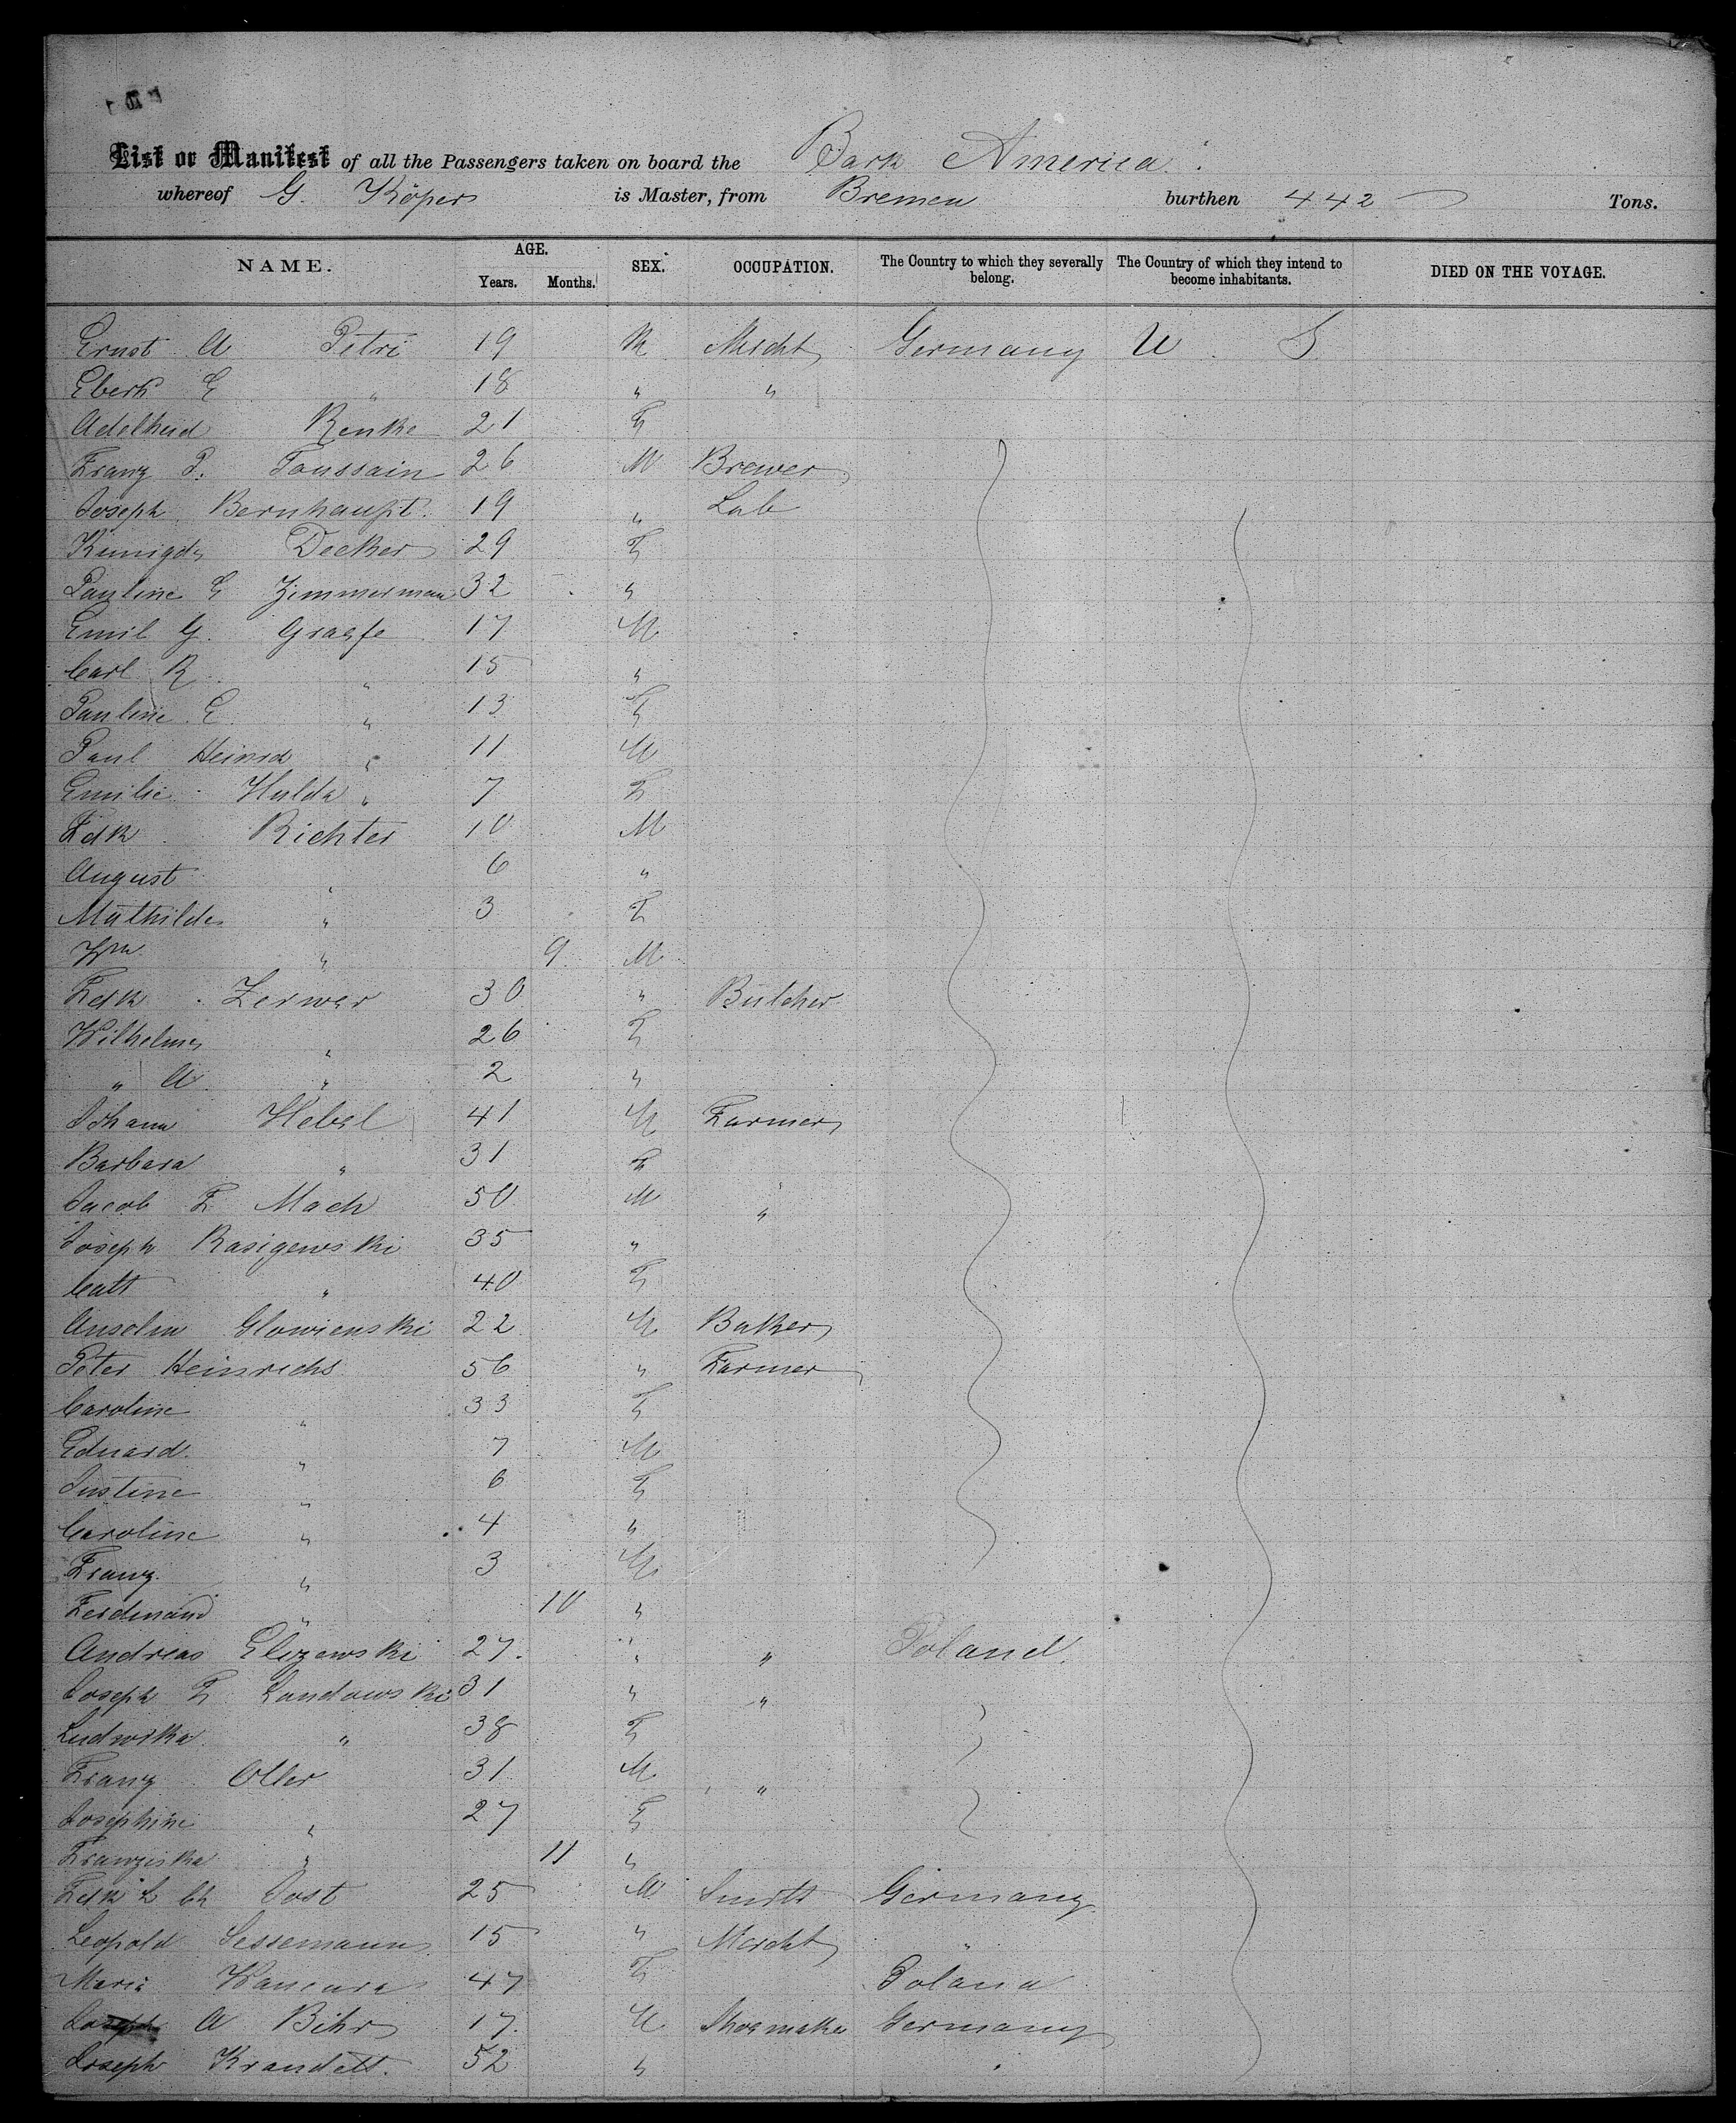 List or Manifest of all the Passengers taken on board the Bark America
whereof G. Köper is Master, from Bremen burthen 442 Tons.
NAME. AGE. Years. Months. SEX. OCCUPATION. The Country to which they severally belong. The Country of which they intend to become inhabitants. DIED ON THE VOYAGE.
Ernst A Petri 19 M Mercht Germany U. S
Eberh E " 18 " "
Adelheid Renke 21 F
Franz P. Toussain 26 M Brewer
Joseph Bernhaupt 19 " Lab
Kunigde Decker 29 F
Pauline E Zimmerman 32 "
Emil G. Graefe 17 M
Carl R. " 15 "
Pauline E. " 13 F
Paul Heinrd " 11 M
Emilie Hulda " 7 F
Fdk Richter 10 M
August " 6 "
Mathilde " 3 F
Wm " 9 M
Fdk Zerwer 30 " Butcher
Wilhelme " 26 F
" A " 2 "
Johann Hebel 41 M Farmer
Barbara " 31 F
Jacob F Mach 50 M "
Joseph Rasigewski 35 "
Cath " 40 F
Anselm Glowienski 22 M Baker
Peter Heinrichs 56 " Farmer
Caroline " 33 F
Eduard " 7 M
Justine " 6 F
Caroline " 4 "
Franz " 3 M
Ferdinand " 10 "
Andreas Elizewski 27 " " Poland
Joseph F. Landowski 31 " "
Ludwika " 38 F
Franz Oller 31 M "
Josephine " 27 F
Franziska " 11 "
Fdk L Ch Jost 25 M Smith Germany
Leopold Sessemann 15 " Mercht "
Maria Wancura 47 F Poland
A Bihr 17 M Shoemaker Germany
Joseph Krandett 52 " "